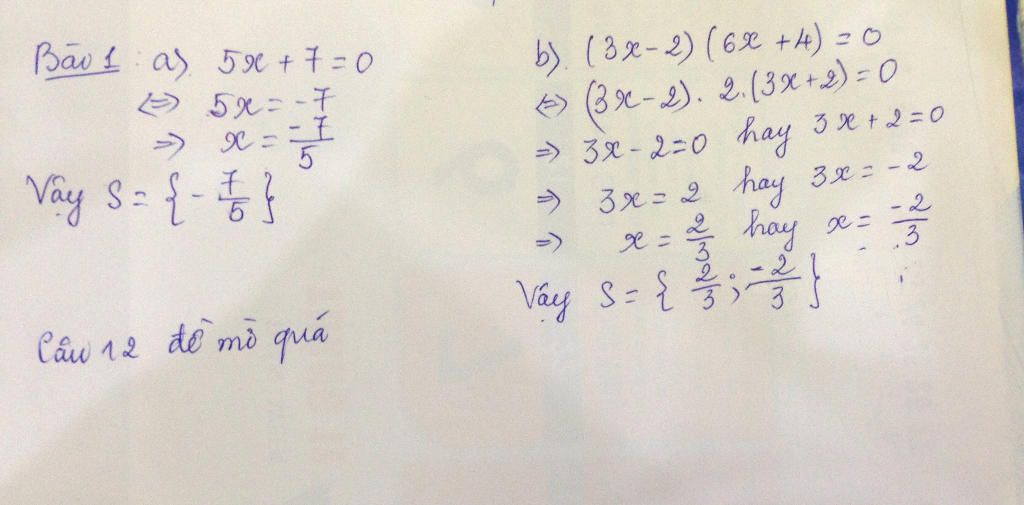 Bài 1 : a). 5x + 7 = 0
<=> 5x = -7
=> x = -7/5
Vậy S = { - 7/5 }
b). (3x - 2) (6x + 4) = 0
<=> (3x - 2). 2.(3x + 2) = 0
=> 3x - 2 = 0 hay 3x + 2 = 0
=> 3x = 2 hay 3x = -2
=> x = 2/3 hay x = -2/3
Vậy S = { 2/3 ; -2/3 }
Câu 12 đề mờ quá